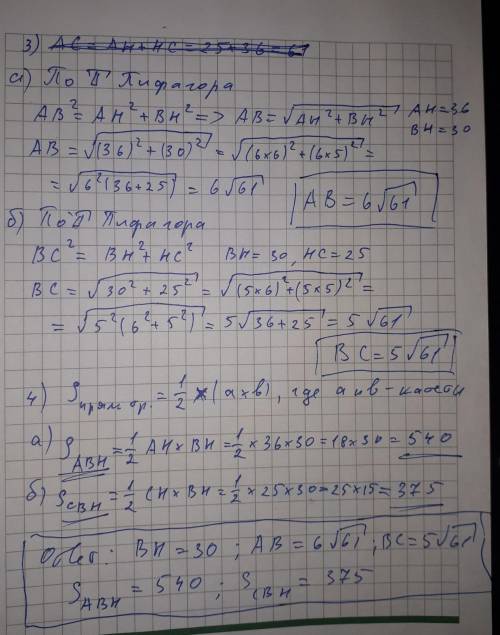 3) AC = AH + HC = 25 + 36 = 61
а) По Т Пифагора
AB² = AH² + BH² => AB = √(AH² + BH²) AH = 36
BH = 30
AB = √((36)² + (30)²) = √((6×6)² + (6×5)²) =
= √(6²(36+25)) = 6√61 AB = 6√61
б) По Т Пифагора
BC² = BH² + HC² BH = 30, HC = 25
BC = √(30² + 25²) = √((5×6)² + (5×5)²) =
= √(5²(6² + 5²)) = 5√(36+25) = 5√61
BC = 5√61
4) S прям. тр. = 1/2 × (a×b), где a и b - катеты
а) S ABH = 1/2 AH × BH = 1/2 × 36 × 30 = 18 × 30 = 540
б) S CBH = 1/2 CH × BH = 1/2 × 25 × 30 = 25 × 15 = 375
Ответ: BH = 30 ; AB = 6√61 ; BC = 5√61
S ABH = 540 ; S CBH = 375